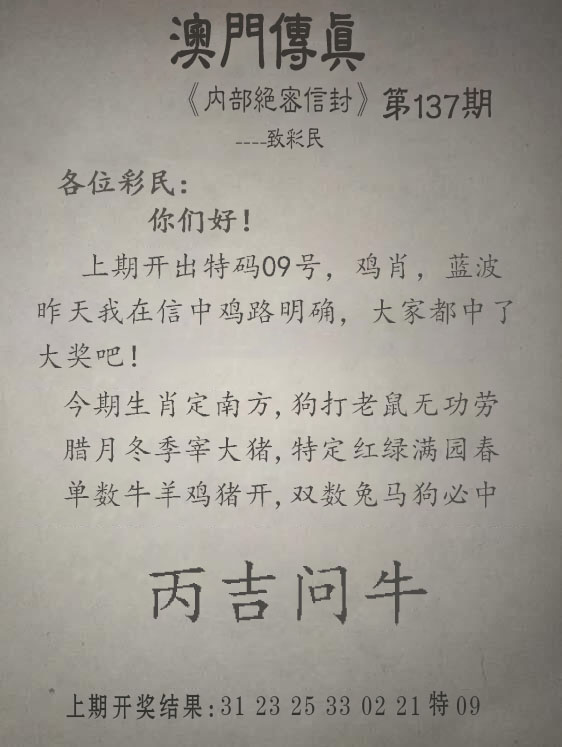 澳門傳真
《内部絕密信封》第137期
----致彩民
各位彩民：
你们好！
上期开出特码09号，鸡肖，蓝波
昨天我在信中鸡路明确，大家都中了
大奖吧！
今期生肖定南方,狗打老鼠无功劳
腊月冬季宰大猪,特定红绿满园春
单数牛羊鸡猪开,双数兔马狗必中
丙吉问牛
上期开奖结果:31 23 25 33 02 21 特 09